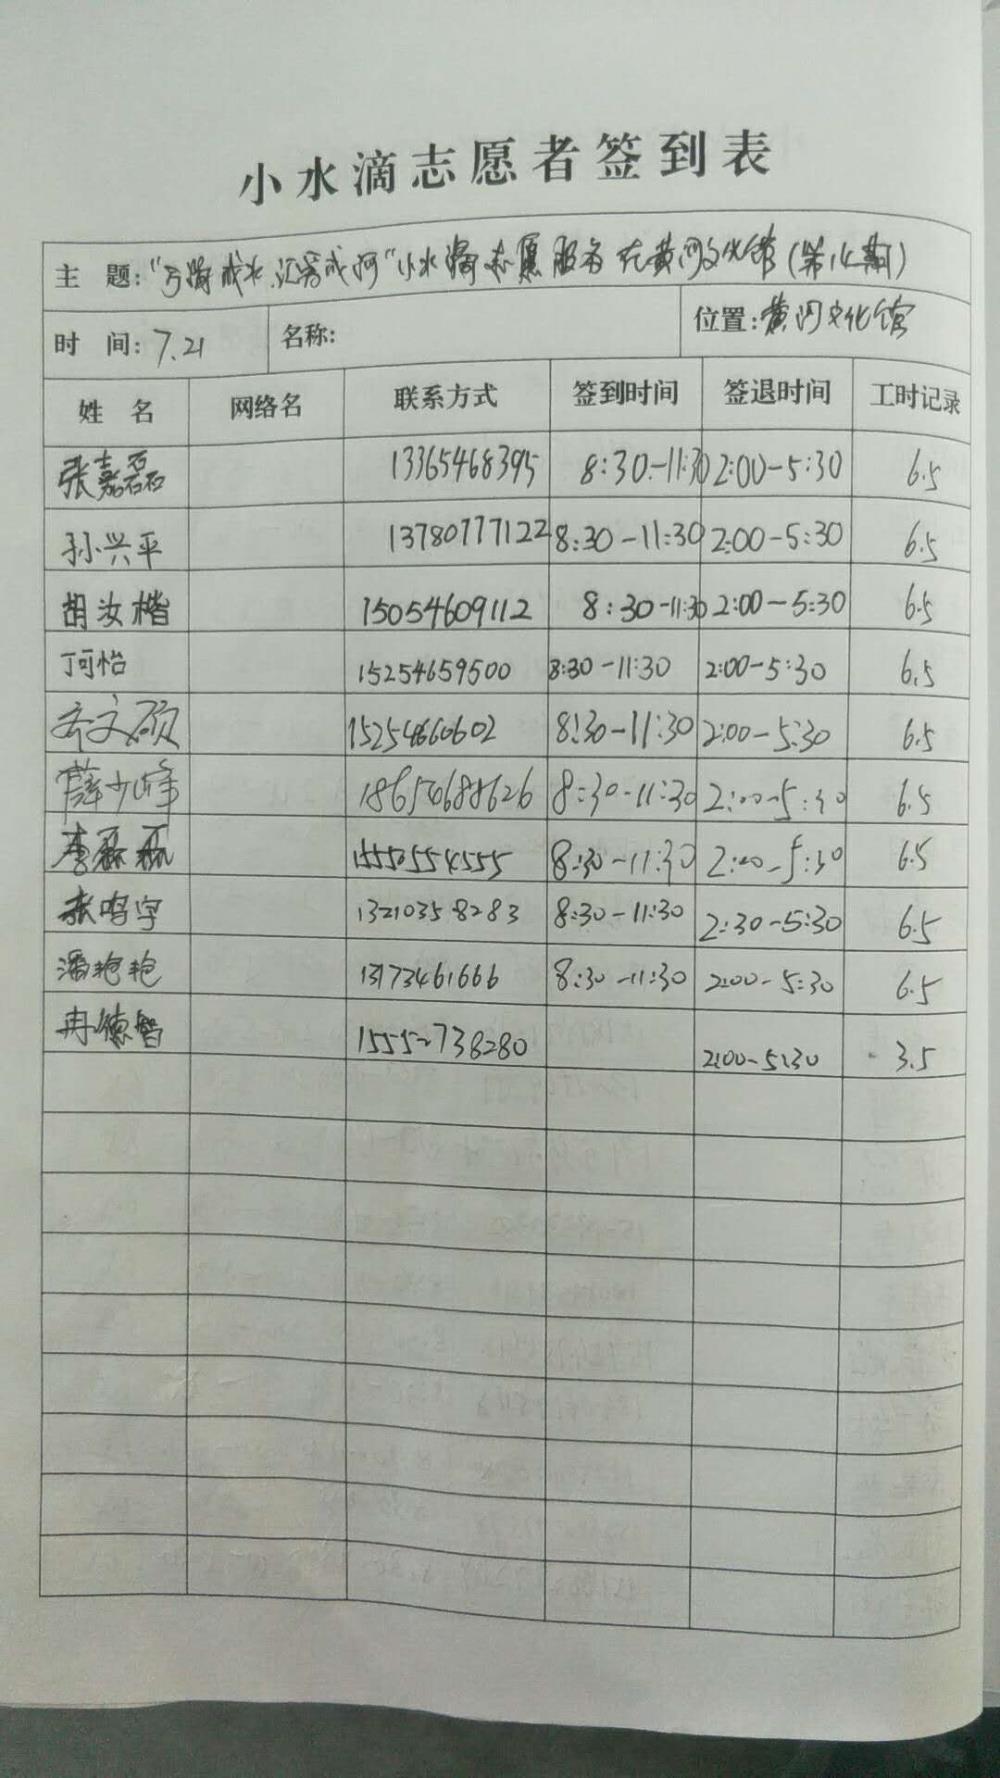 小水滴志愿者签到表
主 题: "亏滴成水,汇容成河"小水滴志愿服务在黄河文化馆(第14期)
时 间: 7.21 名称: 位置: 黄河文化馆
姓 名 网络名 联系方式 签到时间 签退时间 工时记录
张嘉磊 13365468395 8:30-11:30 2:00-5:30 6.5
孙兴平 13780777122 8:30-11:30 2:00-5:30 6.5
胡汝楷 15054609112 8:30-11:30 2:00-5:30 6.5
丁可怡 15254659500 8:30-11:30 2:00-5:30 6.5
齐文硕 15254660602 8:30-11:30 2:00-5:30 6.5
薛少峰 18654688626 8:30-11:30 2:00-5:30 6.5
李磊磊 15550554555 8:30-11:30 2:00-5:30 6.5
张鸣宇 13210358283 8:30-11:30 2:30-5:30 6.5
潘艳艳 13173461666 8:30-11:30 2:00-5:30 6.5
冉德智 15552738280 2:00-5:30 3.5